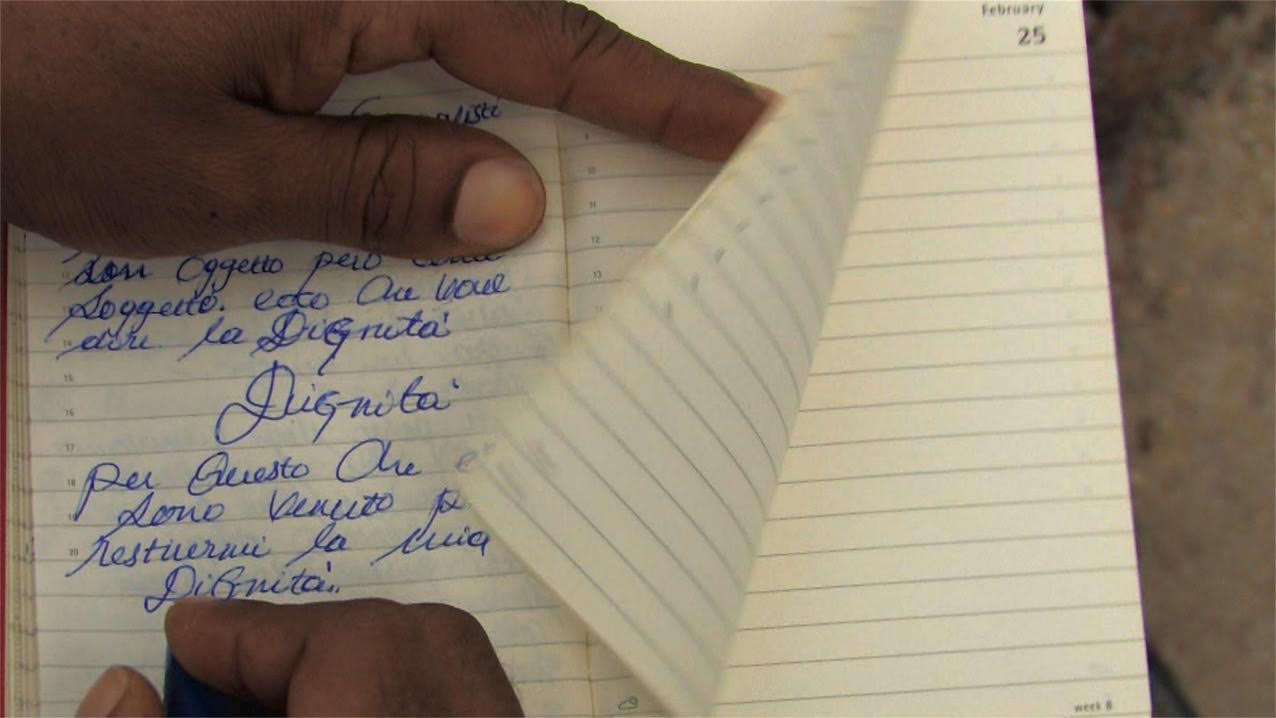 February
25
son oggetto pero come
soggetto. ecco che vuol
dire la Dignità
Dignità
per Questo che
sono venuto
restituermi la mia
Dignità..
9
10
11
12
13
14
15
16
17
18
19
20
week 8